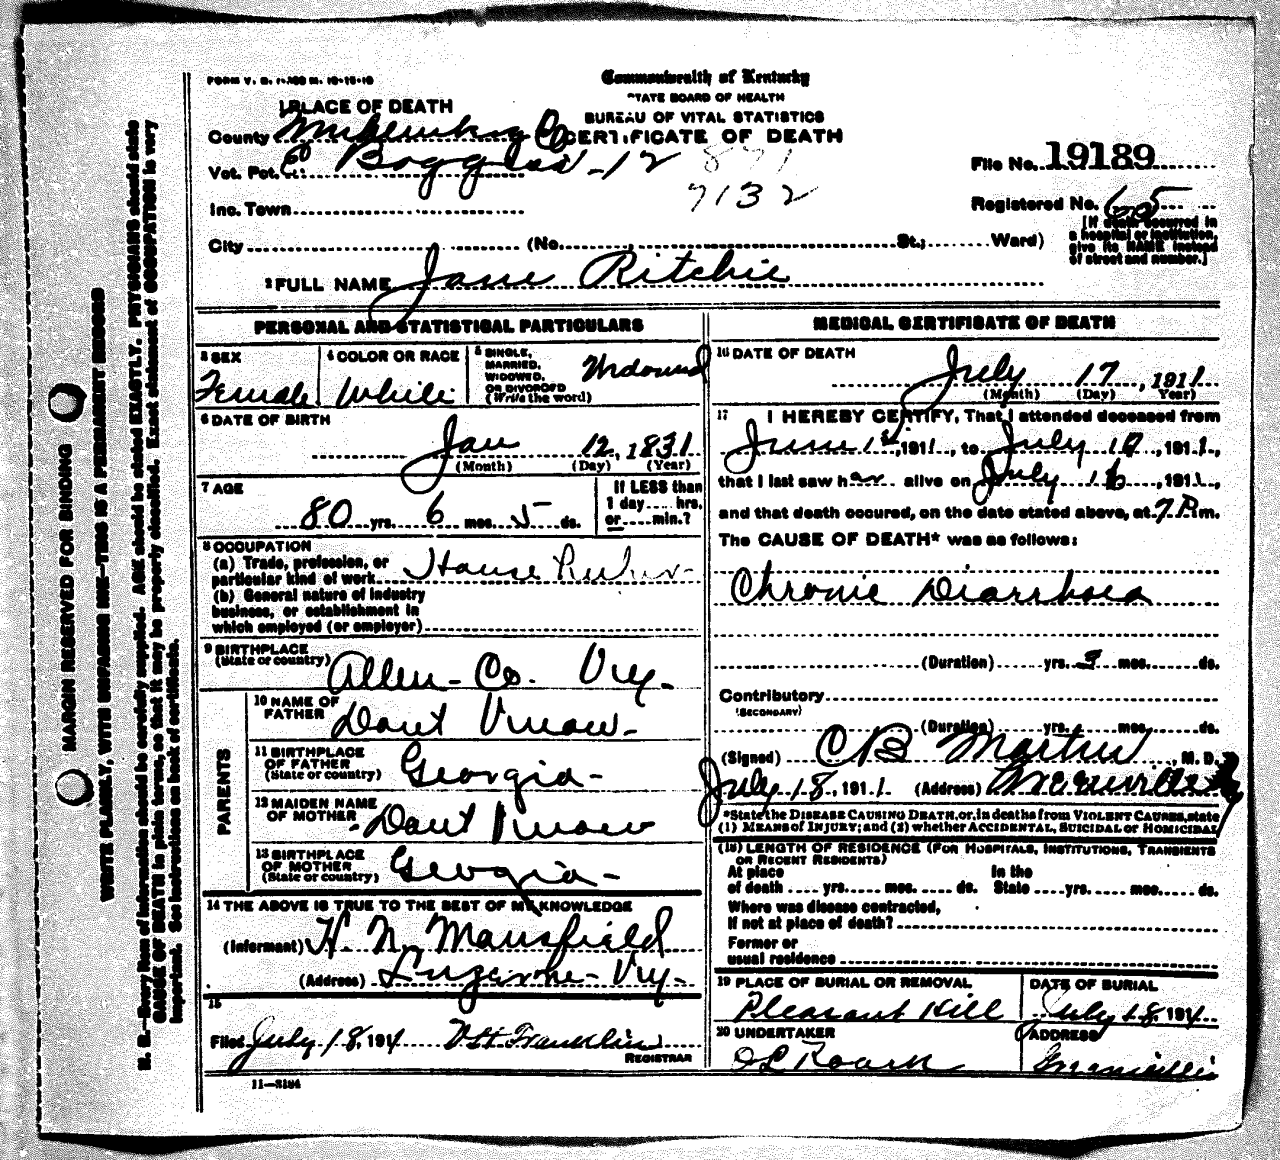 FORM V. S. 10-15-10
Commonwealth of Kentucky
STATE BOARD OF HEALTH
BUREAU OF VITAL STATISTICS
CERTIFICATE OF DEATH
1 PLACE OF DEATH
County Muhlenberg Co
Vot. Pct. Boggess - 12
871
7132
File No. 19189
Inc. Town
Registered No. 65
City (No. St.; Ward)
[If death occurred in
a hospital or institution,
give its NAME instead
of street and number.]
2 FULL NAME Jane Ritchie
PERSONAL AND STATISTICAL PARTICULARS
3 SEX
Female
4 COLOR OR RACE
White
5 SINGLE,
MARRIED,
WIDOWED,
OR DIVORCED
(Write the word)
Widowed
6 DATE OF BIRTH
Jan 12, 1831
(Month) (Day) (Year)
7 AGE
80 yrs. 6 mos. 5 ds.
If LESS than
1 day .... hrs.
or .... min.?
8 OCCUPATION
(a) Trade, profession, or
particular kind of work House
(b) General nature of industry
business, or establishment in
which employed (or employer)
9 BIRTHPLACE
(State or country) Allen - Co.
PARENTS
10 NAME OF
FATHER Dont Know -
11 BIRTHPLACE
OF FATHER
(State or country) Georgia -
12 MAIDEN NAME
OF MOTHER Dont Know
13 BIRTHPLACE
OF MOTHER
(State or country) Georgia -
14 THE ABOVE IS TRUE TO THE BEST OF MY KNOWLEDGE
(Informant) H. N. Mansfield
(Address) Luzerne - Ky -
15
Filed July 18, 1911 Franklin
REGISTRAR
11-3184
MEDICAL CERTIFICATE OF DEATH
16 DATE OF DEATH
July 17, 1911
(Month) (Day) Year)
17 I HEREBY CERTIFY, That I attended deceased from
June 1st, 1911, to July 17, 1911,
that I last saw her alive on July 16, 1911,
and that death occured, on the date stated above, at 7 P. m.
The CAUSE OF DEATH* was as follows:
Chronic Diarrhoea
(Duration) yrs. 3 mos. ds.
Contributory
(SECONDARY)
(Duration) yrs. mos. ds.
(Signed) C B Martin, M. D.
July 18, 1911 (Address) Greenville Ky
*State the DISEASE CAUSING DEATH, or, in deaths from VIOLENT CAUSES, state
(1) MEANS of INJURY; and (2) whether ACCIDENTAL, SUICIDAL or HOMICIDAL
(18) LENGTH OF RESIDENCE (FOR HOSPITALS, INSTITUTIONS, TRANSIENTS
OR RECENT RESIDENTS)
At place In the
of death .... yrs. .... mos. .... ds. State .... yrs. .... mos. .... ds.
Where was disease contracted,
If not at place of death?
Former or
usual residence
19 PLACE OF BURIAL OR REMOVAL
Pleasant Hill
DATE OF BURIAL
July 18, 1911
20 UNDERTAKER
Roark
ADDRESS
Greenville
MARGIN RESERVED FOR BINDING
WRITE PLAINLY, WITH UNFADING INK—THIS IS A PERMANENT RECORD
N. B.—Every item of information should be carefully supplied. AGE should be stated EXACTLY. PHYSICIANS should state
CAUSE OF DEATH in plain terms, so that it may be properly classified. Exact statement of OCCUPATION is very
important. See instructions on back of certificate.